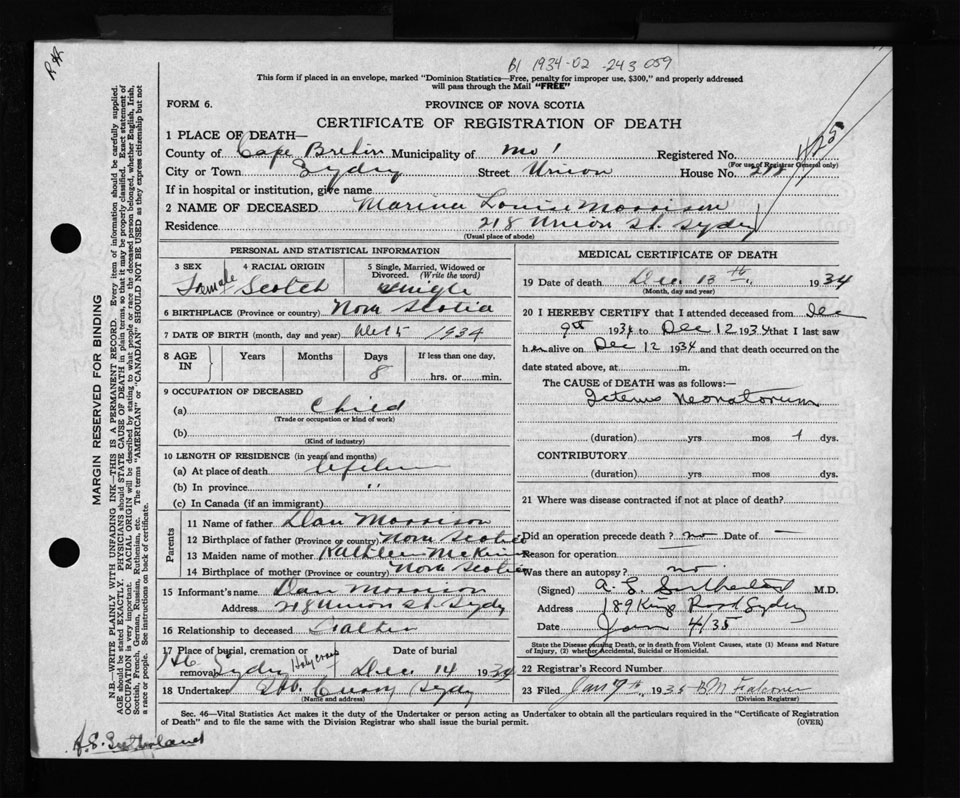 B1 1934-02-243059
This form if placed in an envelope, marked "Dominion Statistics—Free, penalty for improper use, $300," and properly addressed
will pass through the Mail "FREE"
FORM 6.
PROVINCE OF NOVA SCOTIA
CERTIFICATE OF REGISTRATION OF DEATH
1 PLACE OF DEATH—
County of Cape Breton Municipality of Registered No.
(For use of Registrar General only)
City or Town Sydney Street Union House No. 218
If in hospital or institution, give name
2 NAME OF DECEASED Marina Louise Morrison
Residence 218 Union St. Sydney
(Usual place of abode)
PERSONAL AND STATISTICAL INFORMATION
3 SEX 4 RACIAL ORIGIN 5 Single, Married, Widowed or Divorced. (Write the word)
Female Scotch Single
6 BIRTHPLACE (Province or country) Nova Scotia
7 DATE OF BIRTH (month, day and year) 5 1934
8 AGE IN Years Months Days If less than one day,
8 hrs. or min.
9 OCCUPATION OF DECEASED
(a) Child
(Trade or occupation or kind of work)
(b)
(Kind of industry)
10 LENGTH OF RESIDENCE (in years and months)
(a) At place of death lifetime
(b) In province "
(c) In Canada (if an immigrant)
Parents
11 Name of father Dan Morrison
12 Birthplace of father (Province or country) Nova Scotia
13 Maiden name of mother Kathleen
14 Birthplace of mother (Province or country) Nova Scotia
15 Informant's name Dan Morrison
Address 218 Union St. Sydney
16 Relationship to deceased Father
17 Place of burial, cremation or removal Date of burial
Sydney Holy Cross Dec. 14 1934
18 Undertaker Curry Sydney
(Name and address)
MEDICAL CERTIFICATE OF DEATH
19 Date of death Dec. 13th 1934
(Month, day and year)
20 I HEREBY CERTIFY that I attended deceased from Dec
9th 1934 to Dec 12 1934 that I last saw
her alive on Dec 12 1934 and that death occurred on the
date stated above, at m.
The CAUSE of DEATH was as follows:—
Icterus Neonatorum
(duration) yrs mos 4 dys.
CONTRIBUTORY
(duration) yrs. mos. dys.
21 Where was disease contracted if not at place of death?
Did an operation precede death? no Date of —
Reason for operation
Was there an autopsy? no
(Signed) A. E. Sutherland M.D.
Address 189 Kings Road Sydney
Date Jan 4/35
State the Disease causing Death, or in death from Violent Causes, state (1) Means and
Nature of Injury, (2) whether Accidental, Suicidal or Homicidal.
22 Registrar's Record Number
23 Filed Jan 7th, 1935 B M Falconer
(Division Registrar)
Sec. 46—Vital Statistics Act makes it the duty of the Undertaker or person acting as Undertaker to obtain all the particulars required in the "Certificate of Registration
of Death" and to file the same with the Division Registrar who shall issue the burial permit. (OVER)
A.E. Sutherland
MARGIN RESERVED FOR BINDING
N.B.—WRITE PLAINLY WITH UNFADING INK—THIS IS A PERMANENT RECORD. Every item of information should be carefully supplied.
AGE should be stated EXACTLY. PHYSICIANS should STATE CAUSE OF DEATH in plain terms, so that it may be properly classified. Exact statement of
OCCUPATION is very important. RACIAL ORIGIN will be described by stating to what people or race the deceased person belonged, whether English, Irish,
Scottish, French, German, Russian, Ruthenian, etc. The terms "AMERICAN" or "CANADIAN" SHOULD NOT BE USED as they express citizenship but not
a race or people. See instructions on back of certificate.